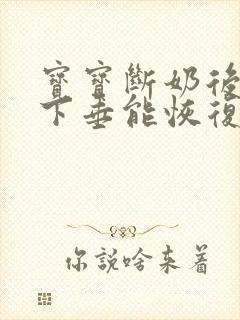 寶寶斷奶後
下垂能恢復
你說啥來着